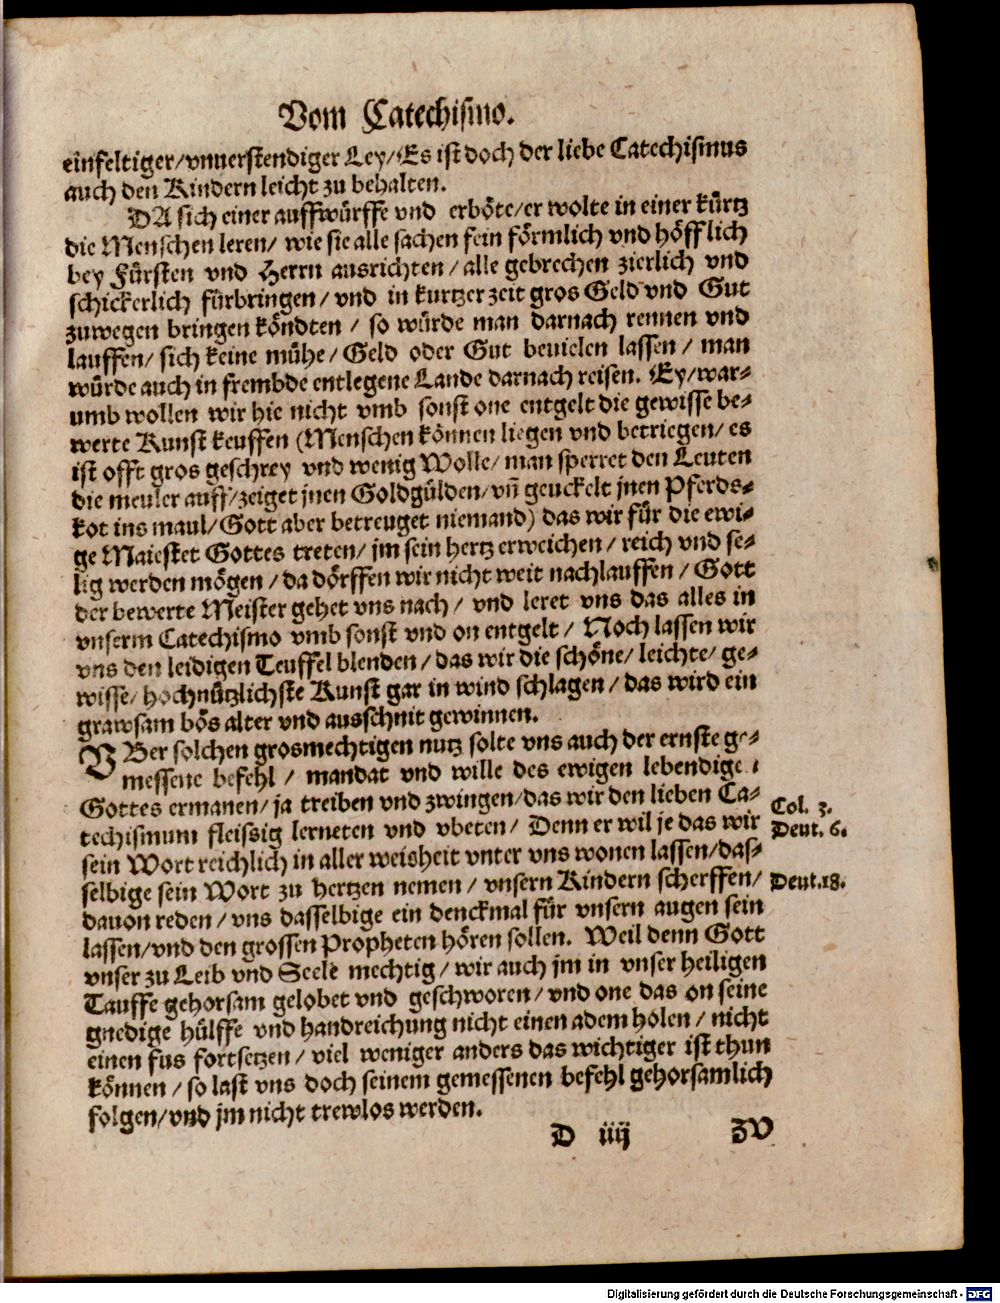 Vom Catechismo.
einfeltiger/vnuerstendiger Ley/Es ist doch der liebe Catechismus
auch den Kindern leicht zu behalten.
DA sich einer auffwürffe vnd erböte/er wolte in einer kürtz
die Menschen leren/ wie sie alle sachen fein förmlich vnd höfflich
bey Fürsten vnd Herrn ausrichten / alle gebrechen zierlich vnd
schickerlich fürbringen/ vnd in kurtzer zeit gros Geld vnd Gut
zuwegen bringen köndten / so würde man darnach rennen vnd
lauffen/ sich keine mühe/ Geld oder Gut beuielen lassen / man
würde auch in frembde entlegene Lande darnach reisen. Ey/war-
umb wollen wir hie nicht vmb sonst one entgelt die gewisse be-
werte Kunst keuffen (Menschen können liegen vnd betriegen/ es
ist offt gros geschrey vnd wenig Wolle/ man sperret den Leuten
die meuler auff/zeiget jnen Goldgülden/vñ geuckelt jnen Pferds-
kot ins maul/Gott aber betreuget niemand) das wir für die ewi-
ge Maiestet Gottes treten/ jm sein hertz erweichen / reich vnd se-
lig werden mögen / da dörffen wir nicht weit nachlauffen / Gott
der bewerte Meister gehet vns nach / vnd leret vns das alles in
vnserm Catechismo vmb sonst vnd on entgelt / Noch lassen wir
vns den leidigen Teuffel blenden / das wir die schöne/ leichte/ ge-
wisse/ hochnützlichste Kunst gar in wind schlagen / das wird ein
grawsam bös alter vnd ausschnit gewinnen.
VBer solchen grosmechtigen nutz solte vns auch der ernste ge-
messene befehl / mandat vnd wille des ewigen lebendigen
Gottes ermanen/ ja treiben vnd zwingen/das wir den lieben Ca-
techismum fleissig lerneten vnd vbeten/ Denn er wil je das wir
sein Wort reichlich in aller weisheit vnter vns wonen lassen/das-
selbige sein Wort zu hertzen nemen / vnsern Kindern scherffen/
dauon reden / vns dasselbige ein denckmal für vnsern augen sein
lassen/vnd den grossen Propheten hören sollen. Weil denn Gott
vnser zu Leib vnd Seele mechtig / wir auch jm in vnser heiligen
Tauffe gehorsam gelobet vnd geschworen / vnd one das on seine
gnedige hülffe vnd handreichung nicht einen adem holen / nicht
einen fus fortsetzen / viel weniger anders das wichtiger ist thun
können / so last vns doch seinem gemessenen befehl gehorsamlich
folgen/vnd jm nicht trewlos werden.
Col. 3.
Deut. 6.
Deut.18.
D iiij
ZV
Digitalisierung gefördert durch die Deutsche Forschungsgemeinschaft - DFG